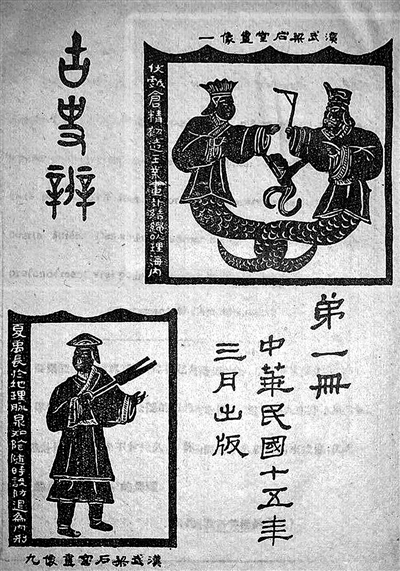 漢武梁石室畫像一
伏戲倉精初造王業畫卦結繩以理海内
古史辨
第一冊
中華民國十五年
三月出版
夏禹長於地理脉泉知陰隨時設防退為肉刑
漢武梁石室畫像九